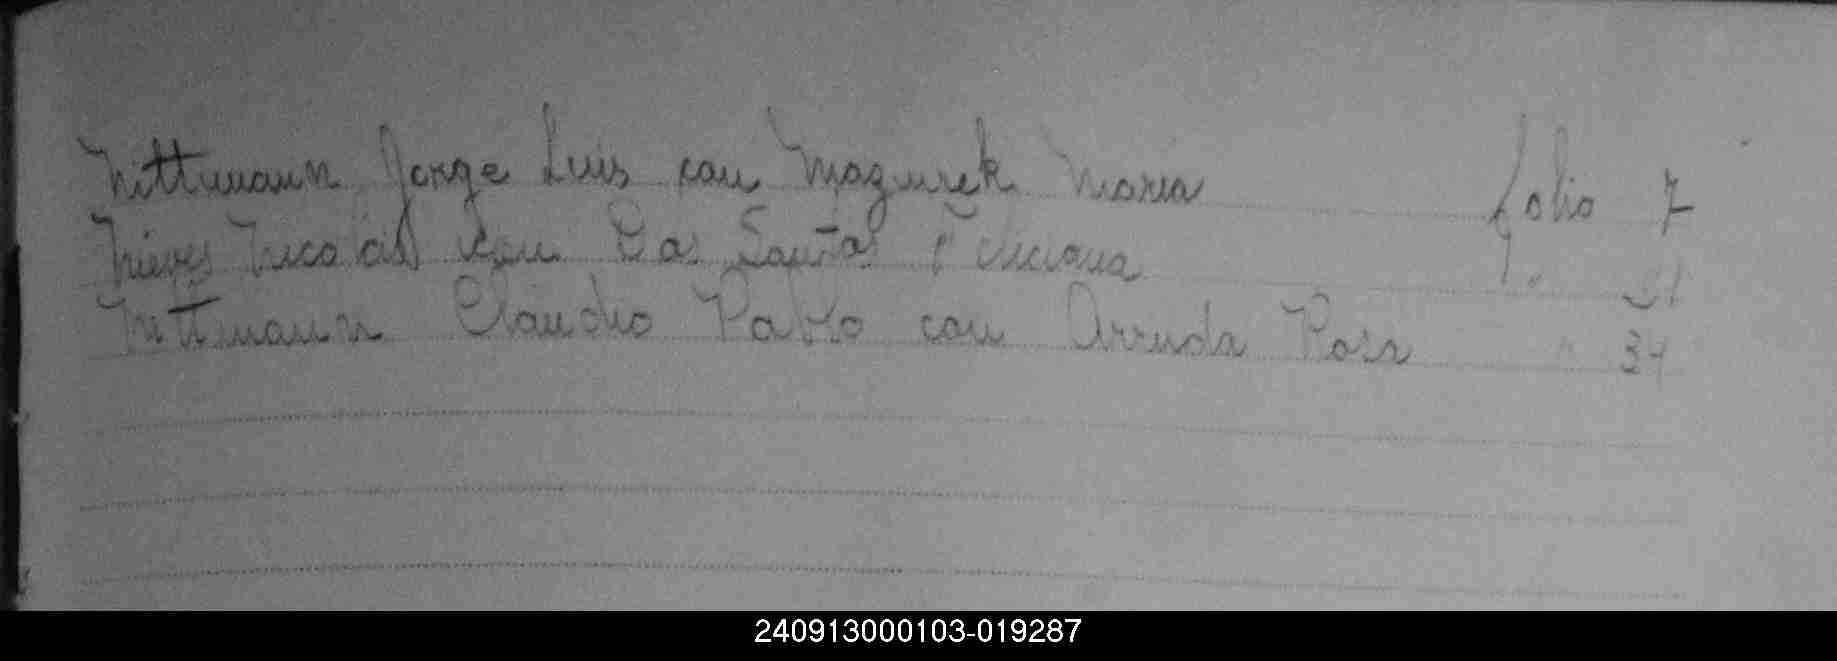 Nittmann Jorge Luis con Mazurek Maria folio 7
Nieves Nicolas con Dos Santos Feliciana " 21
Nittmann Claudio Pablo con Arruda Rosa " 34
240913000103-019287